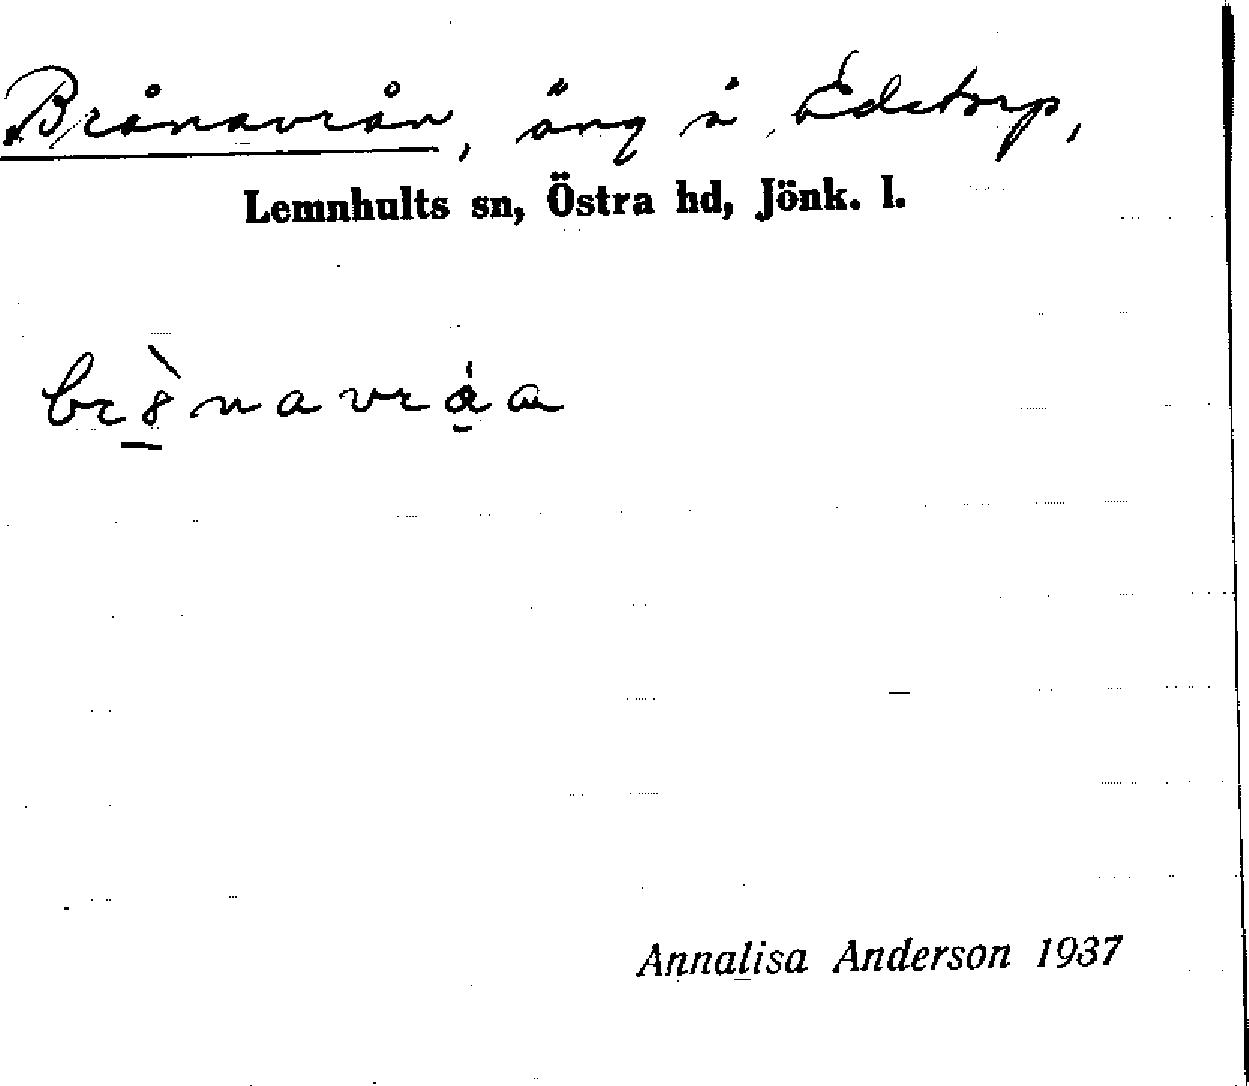 Brånavrån, äng å Edstorp,
Lemnhults sn, Östra hd, Jönk. l.
Annalisa Anderson 1937